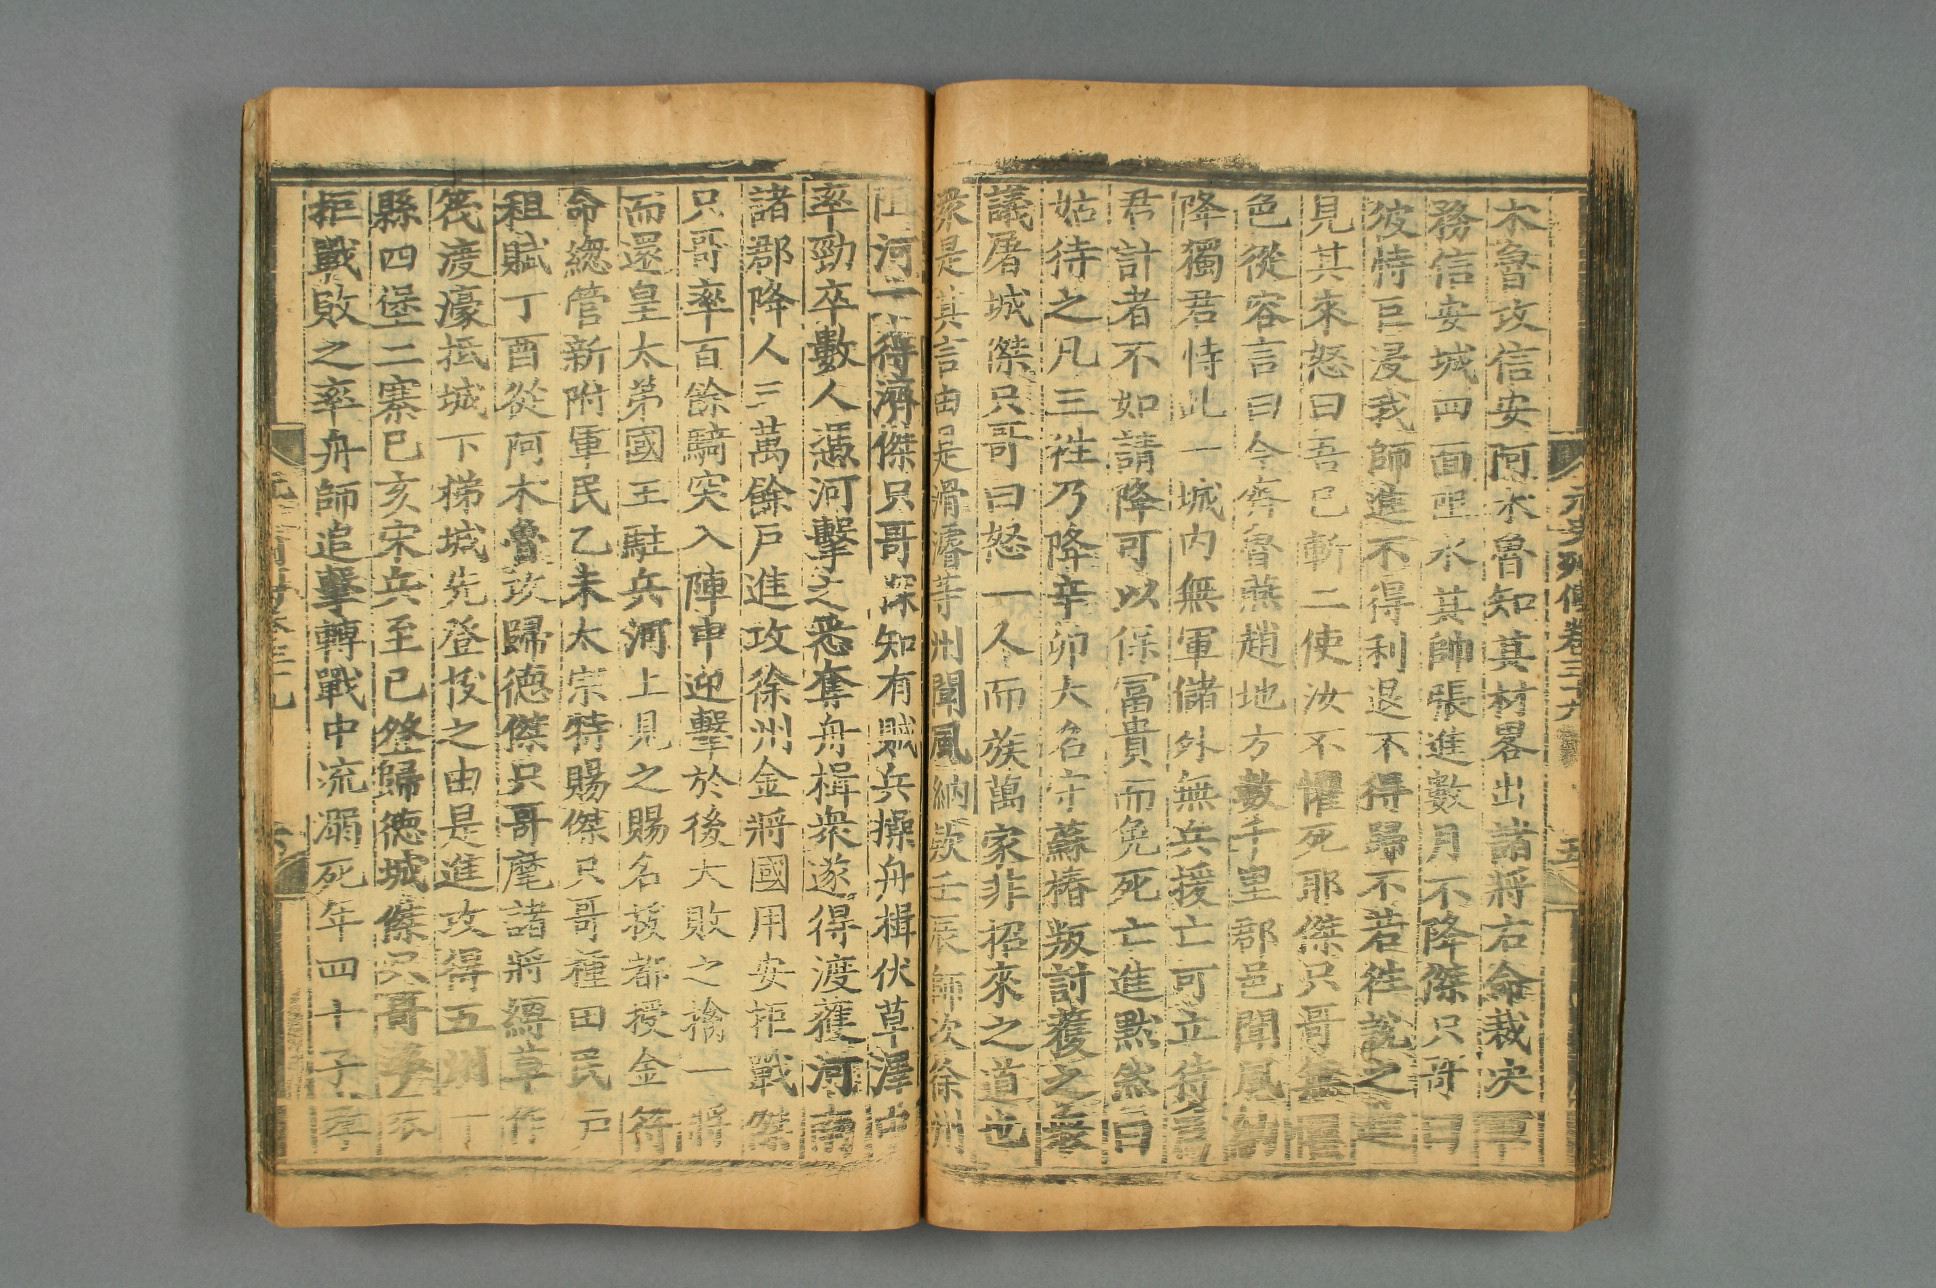 木魯攻信安阿木魯知其材畧出諸將右命裁决軍
務信安城四面阻水其帥張進數月不降傑只哥曰
彼恃巨浸我師進不得利退不得歸不若徃說之進
見其來怒曰吾已斬二使汝不懼死耶傑只哥無懼
色從容言曰今齊魯燕趙地方數千里郡邑聞風納
降獨君恃此一城内無軍儲外無兵援亡可立待爲
君計者不如請降可以保冨貴而免死亡進默然曰
姑待之凡三徃乃降辛卯大名守蘇椿叛討獲之衆
議屠城傑只哥曰怒一人而族萬家非招來之道也
衆是其言由是滑濬等州聞風納欵壬辰師次徐州
河一得濟傑只哥探知有賊兵操舟楫伏草澤中
率勁卒數人憑河擊之悉奪舟楫衆遂得渡獲河南
諸郡降人三萬餘戶進攻徐州金將國用安拒戰傑
只哥率百餘騎突入陣中迎擊於後大敗之擒一將
而還皇太弟國王駐兵河上見之賜名拔都授金符
命緫管新附軍民乙未太宗特賜傑只哥種田民戶
租賦丁酉從阿木魯攻歸德傑只哥麾諸將縛草作
筏渡濠抵城下梯城先登拔之由是進攻得五州一
縣四堡二寨巳亥宋兵至已登歸德城傑只哥
拒戰敗之率舟師追擊轉戰中流溺死年四十子
元史列傳卷三十九
五
卷三十九
六